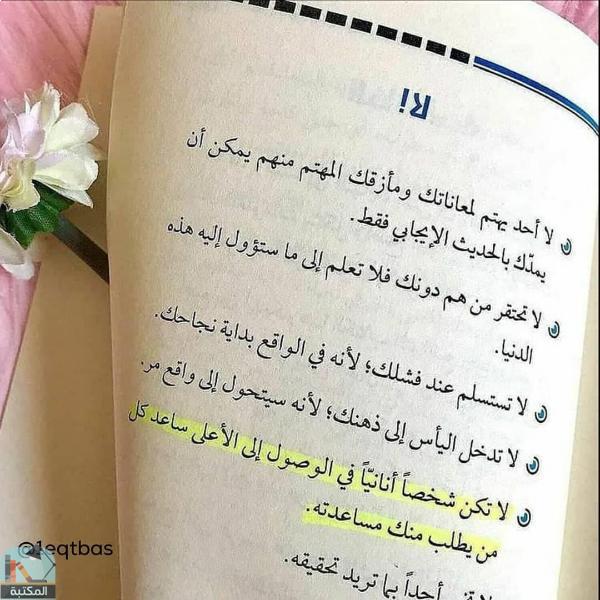 لا!
لا أحد يهتم لمعاناتك ومأزقك المهتم منهم يمكن أن
يمدّك بالحديث الإيجابي فقط.
لا تحتقر من هم دونك فلا تعلم إلى ما ستؤول إليه هذه
الدنيا.
لا تستسلم عند فشلك؛ لأنه في الواقع بداية نجاحك.
لا تدخل اليأس إلى ذهنك؛ لأنه سيتحول إلى واقع مر.
لا تكن شخصاً أنانيّاً في الوصول إلى الأعلى ساعد كل
من يطلب منك مساعدته.
أحداً بما تريد تحقيقه.
@1eqtbas
المكتبة